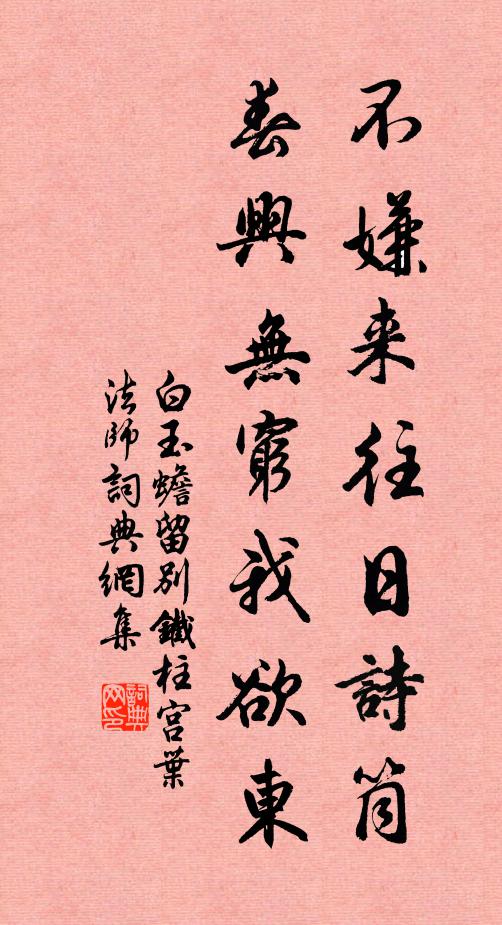 不嫌来往日詩筒
春興無窮我欲東
白玉蟾留別鐵柱宮葉
法師詞典網集
詞典网印